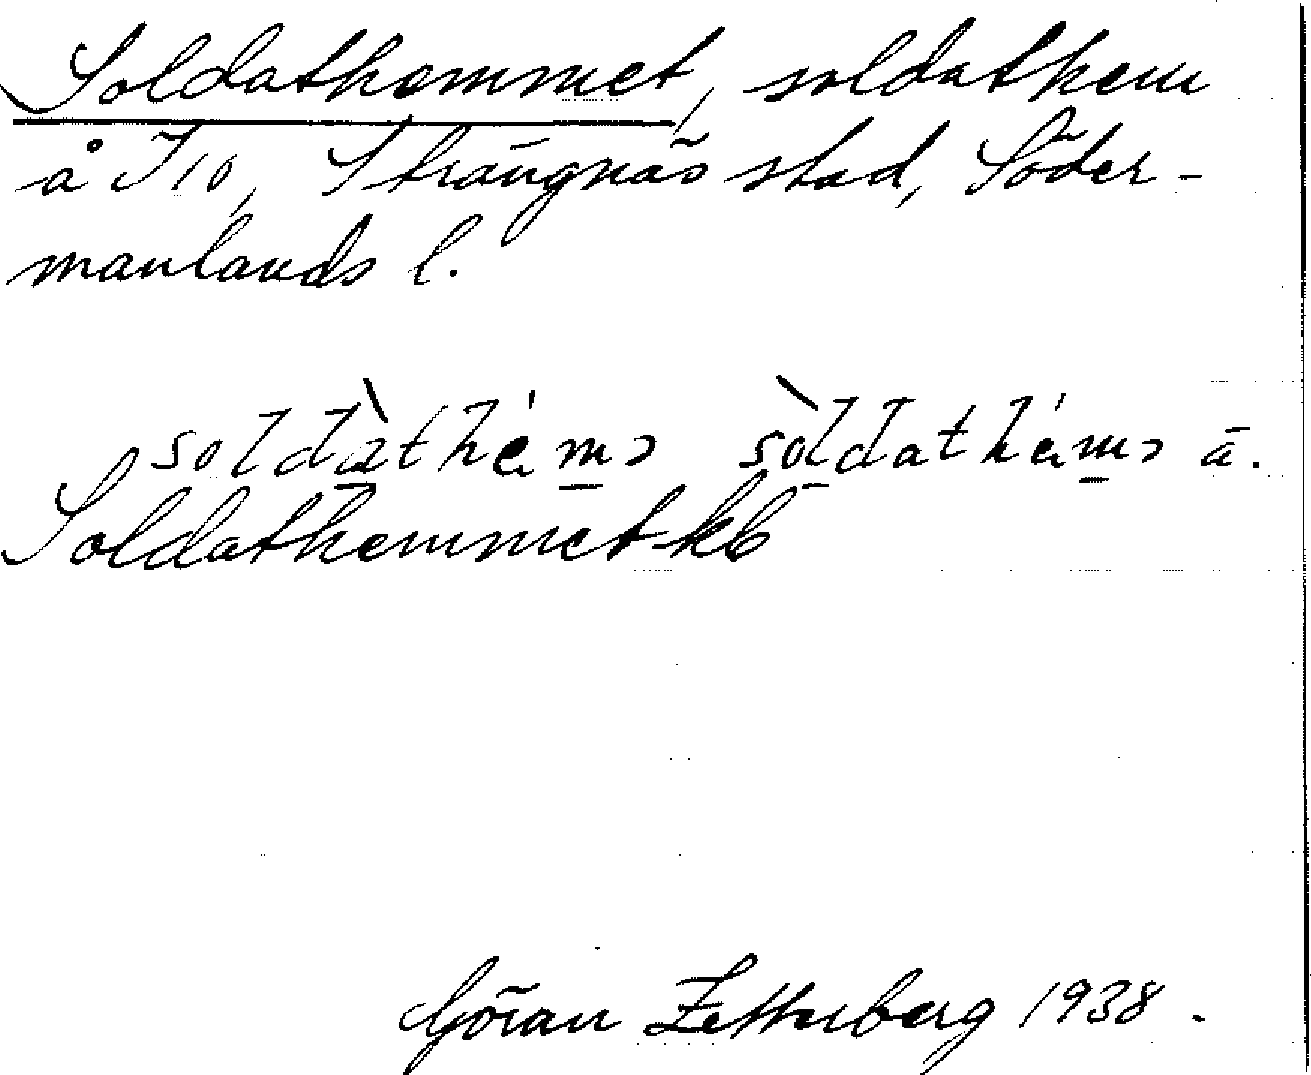 Soldathemmet, soldathem
å I 10, Strängnäs stad, Söder-
manlands l.
soldàthém̲ɔ sòldathém̲ɔ ā.
Soldathemmet kb
Göran Zetterberg 1938.